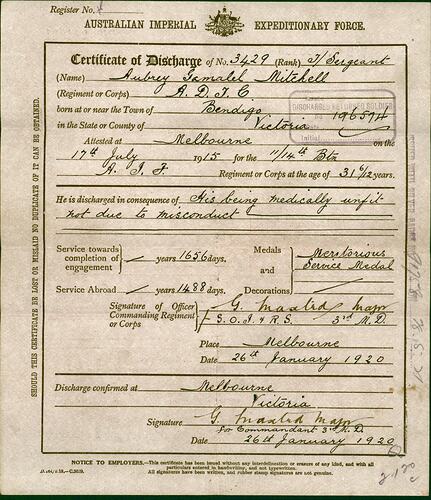 Register No.
AUSTRALIAN IMPERIAL EXPEDITIONARY FORCE.
Certificate of Discharge of No. 3429 (Rank) T/Sergeant
(Name) Aubrey Gamalel Mitchell
(Regiment or Corps) A. D. T. C
born at or near the Town of Bendigo
in the State or County of Victoria
DISCHARGED RETURNED SOLDIER
196574
Initial
Attested at Melbourne on the
17th July 1915 for the 11/14th Btn
A. I. F Regiment or Corps at the age of 31 6/12 years.
He is discharged in consequence of His being medically unfit
not due to misconduct
Service towards completion of engagement years 1656 days.
Medals and Decorations Meritorious Service Medal
Service Abroad years 1488 days.
Signature of Officer Commanding Regiment or Corps G. Maxted Major
S. O. I. & R. S. 3rd M. D.
Place Melbourne
Date 26th January 1920
Discharge confirmed at Melbourne
Victoria
Signature G. Maxted Major
for Commandant 3rd M. D
Date 26th January 1920
NOTICE TO EMPLOYERS.—This certificate has been issued without any interdelineation or erasure of any kind, and with all
particulars entered in handwriting, and not typewritten.
All signatures are written, and rubber stamp signatures are not genuine.
SHOULD THIS CERTIFICATE BE LOST OR MISLAID NO DUPLICATE OF IT CAN BE OBTAINED.